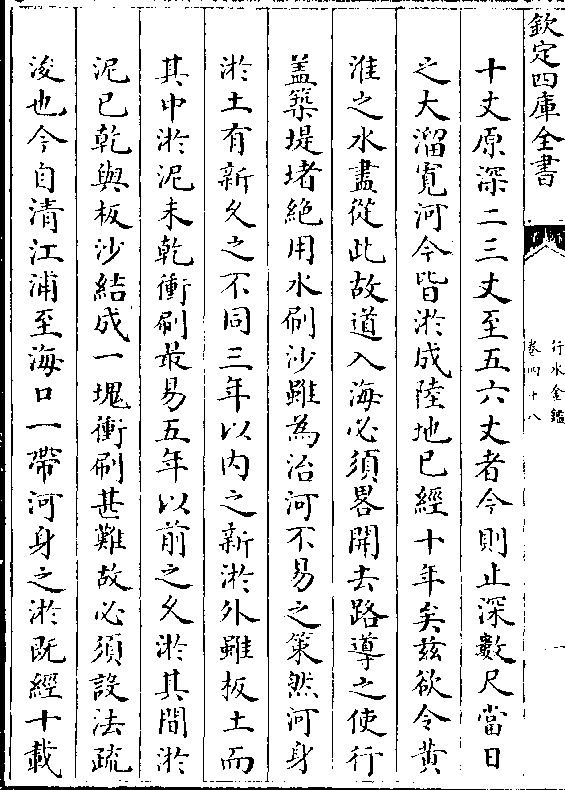 欽定四庫全書
行水金鑑
卷四十八
一
十丈原深二三丈至五六丈者今則止深數尺當日
之大溜寛河今皆淤成陸地已經十年矣兹欲令黄
淮之水盡從此故道入海必須畧開去路導之使行
盖築堤堵絶用水刷沙雖為治河不易之策然河身
淤土有新久之不同三年以内之新淤外雖板土而
其中淤泥未乾衝刷最易五年以前之久淤其間淤
泥已乾與板沙結成一塊衝刷甚難故必須設法疏
浚也今自清江浦至海口一帶河身之淤既經十載